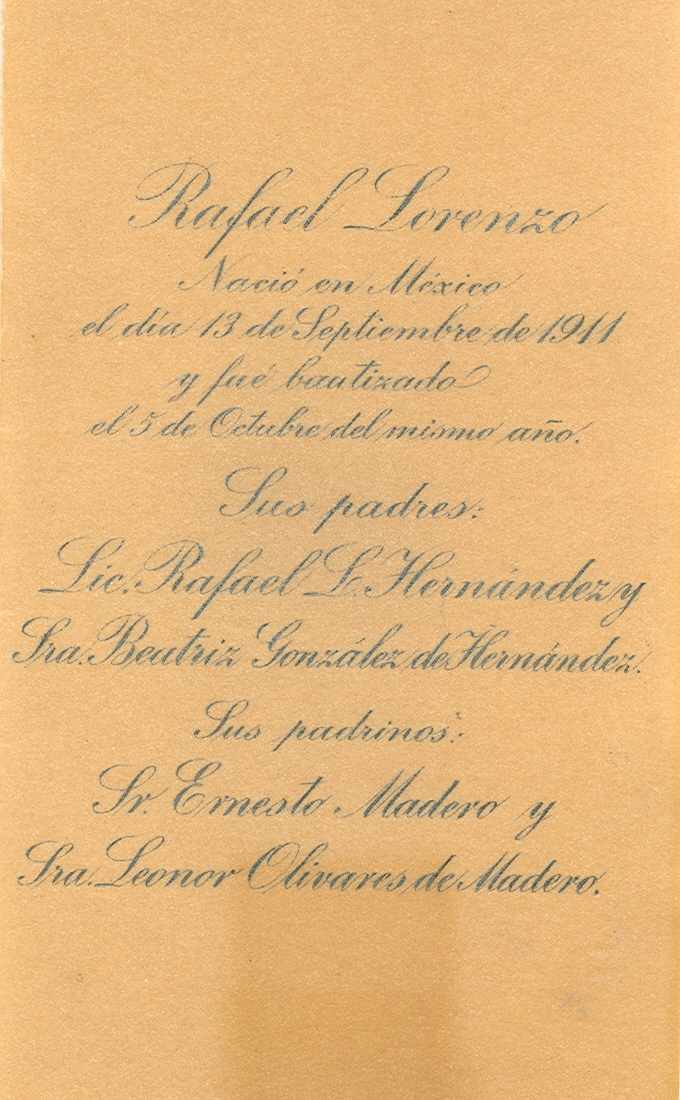 Rafael Lorenzo
Nació en México
el día 13 de Septiembre de 1911
y fué bautizado
el 5 de Octubre del mismo año.
Sus padres:
Lic. Rafael L. Hernández y
Sra. Beatriz González de Hernández.
Sus padrinos:
Sr. Ernesto Madero y
Sra. Leonor Olivares de Madero.